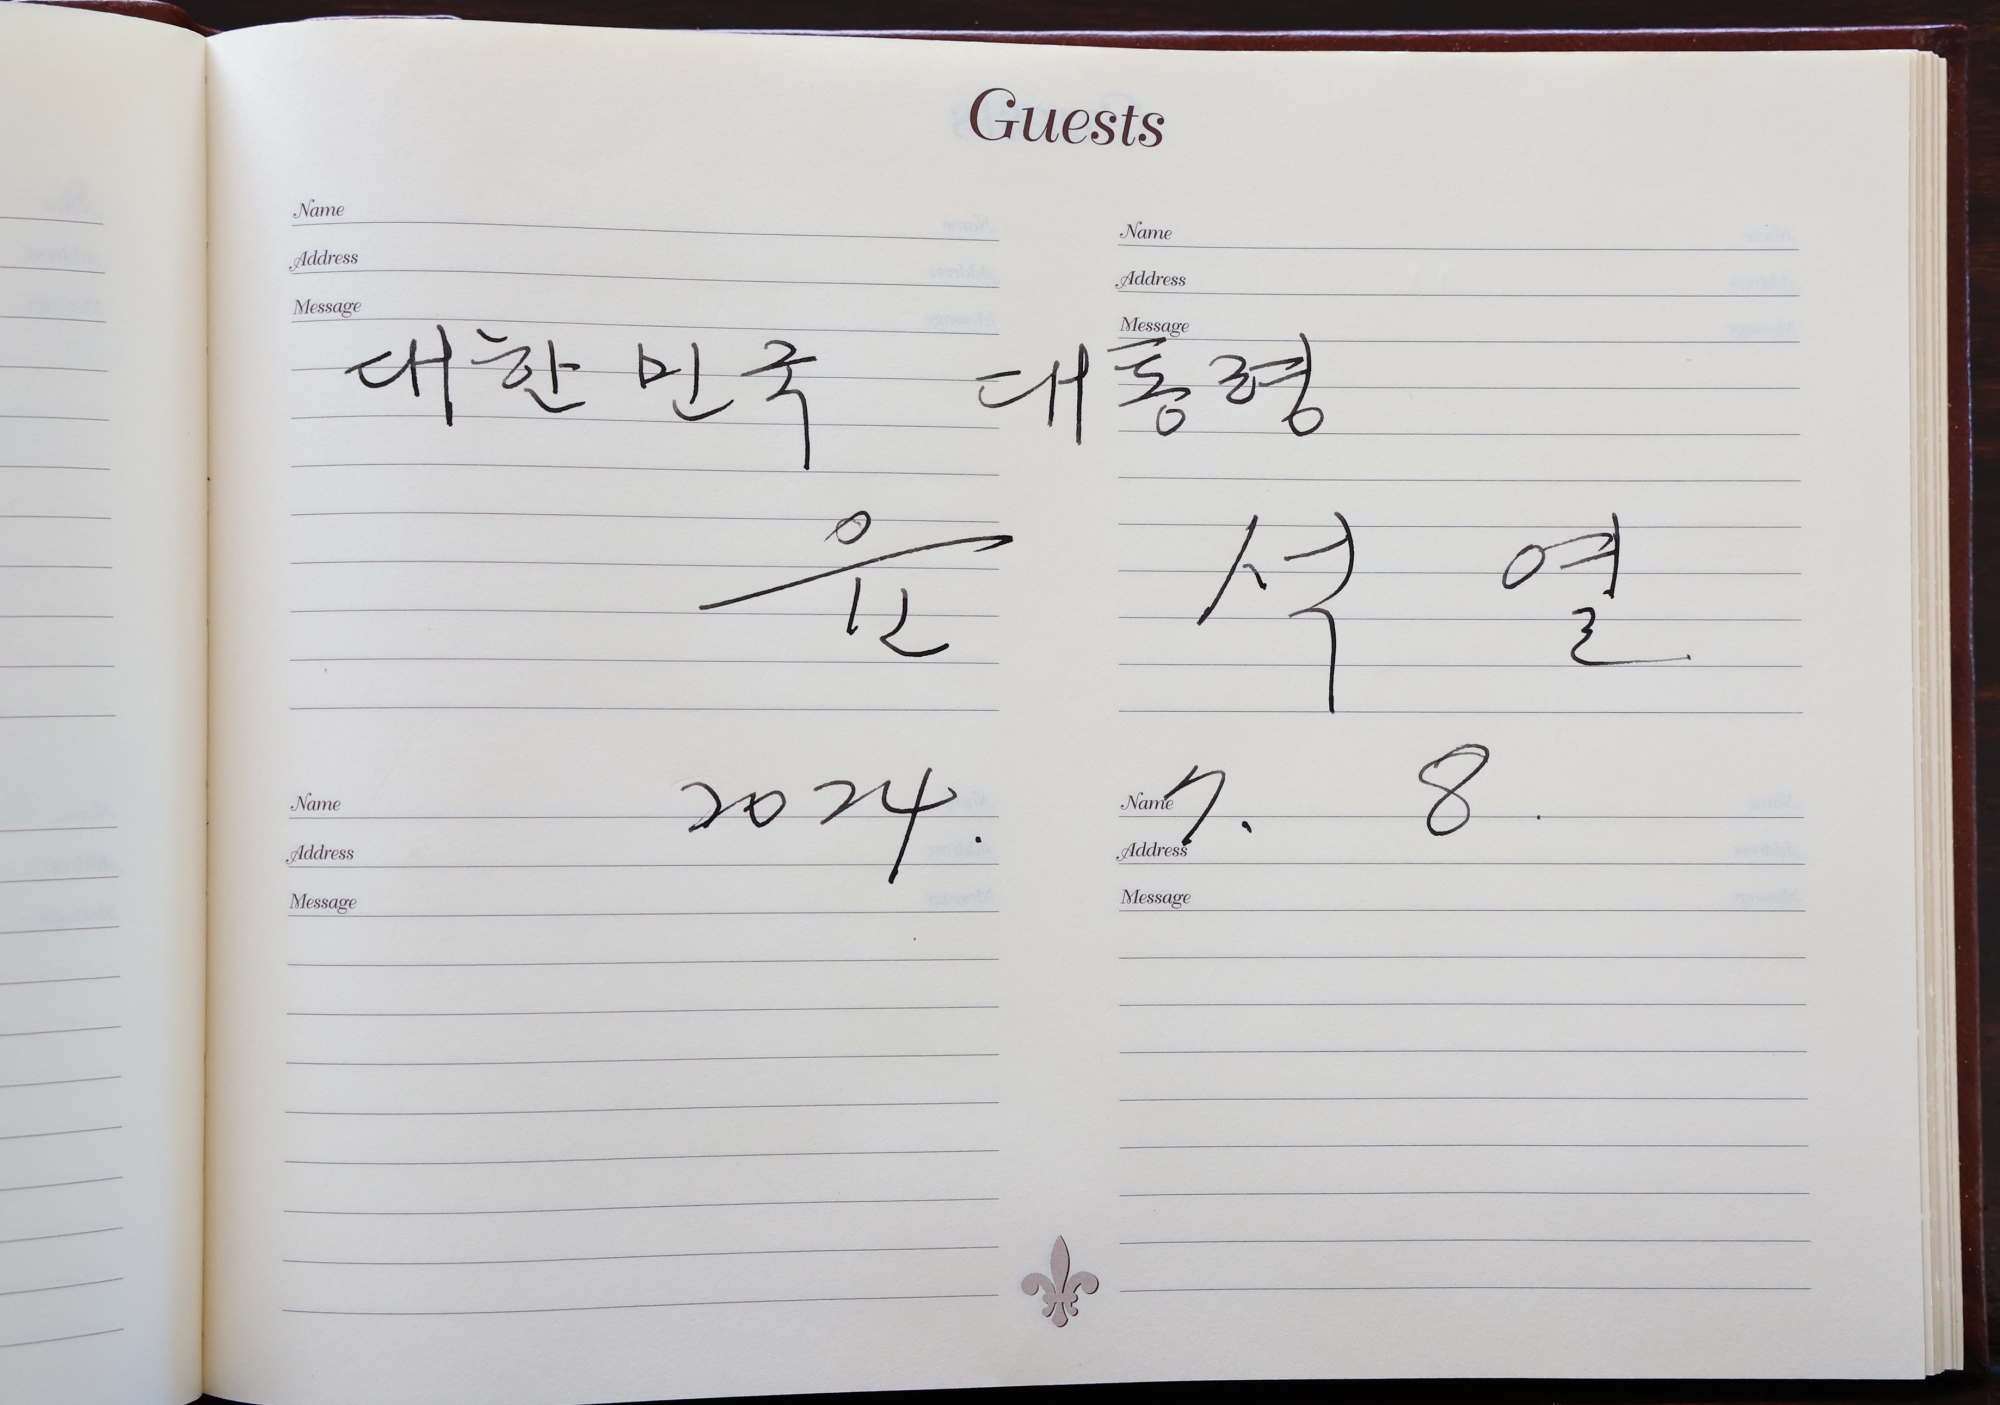 Guests
Name
Address
Message
Name
Address
Message
대한민국 대통령
윤 석 열
2024. 7. 8.
Name
Address
Message
Name
Address
Message